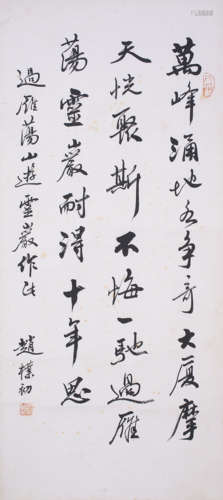 萬峰涌地各争奇大厦摩
天恍聚斯不悔一馳過雁
蕩靈巖耐得十年思
過雁蕩山遊靈巖作
趙樸初